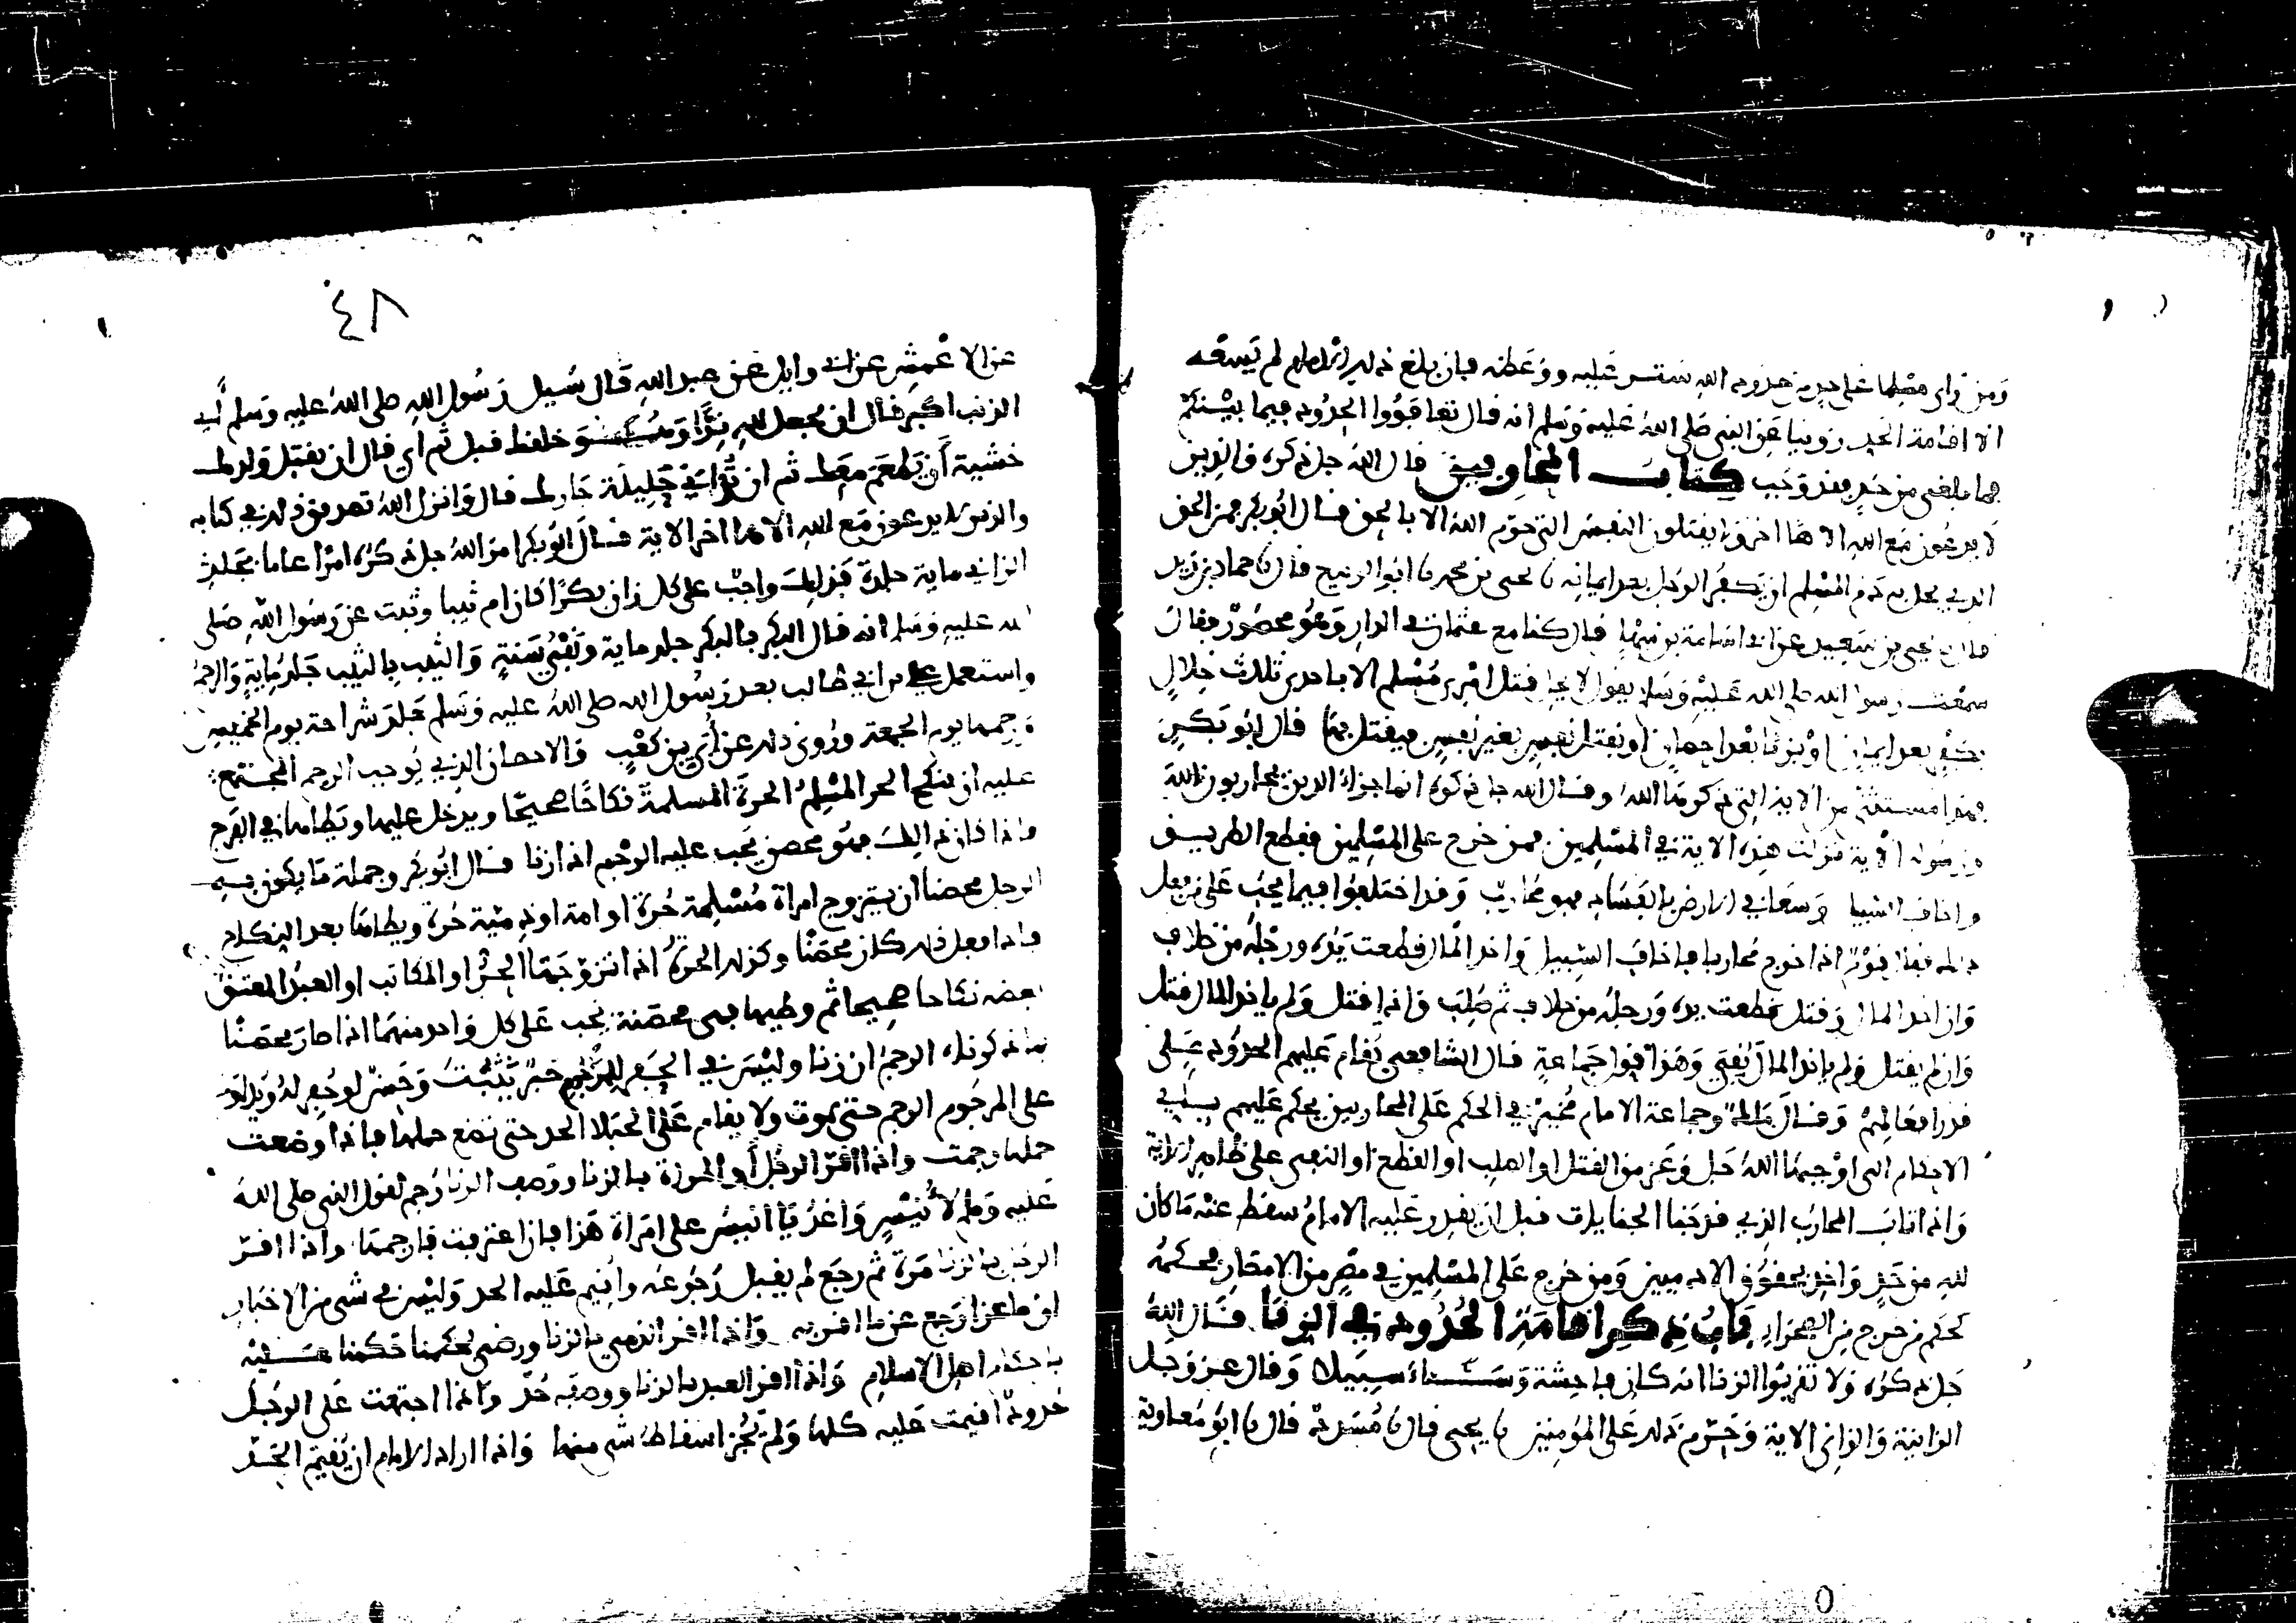 ومن راى مصليا على حد من حدود الله ستر عليه ووعظه فان بلغ ذلك الامام لم يسعه
الا اقامة الحد روينا عن النبي صلى الله عليه وسلم انه قال تعافووا الحدود فيما بينكم
فما بلغني من حد فقد وجب كتاب المحاربين قال الله جل ذكره والذين
لا يدعون مع الله الاها اخر ولا يقتلون النفس التي حرم الله الا بالحق قال ابو بكر فمن الحق
الذي يحل به دم المسلم ان يكفر الرجل بعد ايمانه نا يحيى بن محمد نا ابو الربيع قال نا حماد بن زيد
قال نا يحيى بن سعيد عن ابي امامة بن سهل قال كنا مع عثمان في الدار وهو محصور فقال
سمعت رسول الله صلى الله عليه وسلم يقول لا يحل قتل امرئ مسلم الا باحدى ثلاث خلال
يكفر بعد ايمان او بزنا بعد احصان او يقتل نفس بغير نفس فيقتل بها قال ابو بكر
فهذا مستثنى من الاية التي ذكرها الله وقال الله جل ذكره انما جزاء الذين يحاربون الله
ورسوله الاية نزلت هذه الاية في المسلمين فمن خرج على المسلمين فقطع الطريق
واخاف السبيل وسعا في الارض بالفساد فهو محارب وقد اختلفوا فيما يجب على من فعل
ذلك فقال قوم اذا خرج محاربا فاخاف السبيل واخذ المال قطعت يده ورجله من خلاف
وان اخذ المال وقتل قطعت يده ورجله من خلاف ثم صلب واذا قتل ولم ياخذ المال قتل
وان لم يقتل ولم ياخذ المال نفي وهذا قول جماعة قال الشافعي تقام عليهم الحدود على
قدر افعالهم وقال مالك وجماعة الامام مخير في الحكم على المحاربين يحكم عليهم بـ
الاحكام التي اوجبها الله جل وعز من القتل او الصلب او القطع او النفي على ظاهر الاية
واذا تاب المحارب الذي قد جنا الجنايات قبل ان يقدر عليه الامام سقط عنه ما كان
لله من حد واخذ بحقوق الادميين ومن خرج على المسلمين في مصر من الامصار فحكمه
كحكم من خرج في الصحراء باب ذكر اقامة الحدود في الزنا قال الله
جل ذكره ولا تقربوا الزنا انه كان فاحشة وساء سبيلا وقال عز وجل
الزانية والزاني الاية وحرم ذلك على المؤمنين نا يحيى قال نا مسدد قال نا ابو معاوية
٤٨
عن الاعمش عن ابي وايل عن عبد الله قال سيل رسول الله صلى الله عليه وسلم اي
الذنب اكبر قال ان تجعل لله ندا وهو خلقك قيل ثم اي قال ان تقتل ولدك
خشية ان يطعم معك ثم ان تزاني حليلة جارك قال وانزل الله تصديق ذلك في كتابه
والذين لا يدعون مع الله الاها اخر الاية قال ابو بكر امر الله جل ذكره امرا عاما بجلد
الزاني ماية جلدة فذلك واجب على كل زان بكرا كان ام ثيبا وثبت عن رسول الله صلى
الله عليه وسلم انه قال البكر بالبكر جلد ماية ونفي سنة والثيب بالثيب جلد ماية والرجم
واستعمل علي بن ابي طالب بعد رسول الله صلى الله عليه وسلم جلد شراحة يوم الخميس
ورجمها يوم الجمعة وروي ذلك عن ابي بن كعب والاحصان الذي يوجب الرجم المجتمع
عليه ان ينكح الحر المسلم الحرة المسلمة نكاحا صحيحا ويدخل عليها ويطاها في الفرج
فاذا كان ذلك فهو محصن يجب عليه الرجم اذا زنا قال ابو بكر وجملة ما يكون به
الرجل محصنا ان يتزوج امراة مسلمة حرة او امة او ذمية حرة ويطاها بعد النكاح
فاذا فعل ذلك كان محصنا وكذلك الحرة اذا تزوجها الحر او المكاتب او العبد المعتق
بعضه نكاحا صحيحا ثم وطيها فهي محصنة يجب على كل واحد منهما اذا صار محصنا
بما ذكرناه الرجم ان زنا وليس في الحفر للمرجوم خبر يثبت وحسن لو حفر له ويدا
على المرجوم الرجم حتى يموت ولا يقام على الحبلا الحد حتى تضع حملها فاذا وضعت
حملها رجمت واذا اقر الرجل او المرزة بالزنا ووصف الزنا رجم لقول النبي صلى الله
عليه وسلم لانيس واغد يا انيس على امراة هذا فان اعترفت فارجمها واذا اقر
الرجل بالزنا مرة ثم رجع لم يقبل رجوعه واقيم عليه الحد وليس في شي من الاخبار
ان ماعزا رجع عن ما اقر به واذا اقر الذمي بالزنا ورضي بحكمنا حكمنا عليه
باحكام اهل الاسلام واذا اقر العبد بالزنا ووصفه حد واذا اجتمعت على الرجل
حدود اقيمت عليه كلها ولم يجز اسقاط شي منها واذا اراد الامام ان يقيم الحد